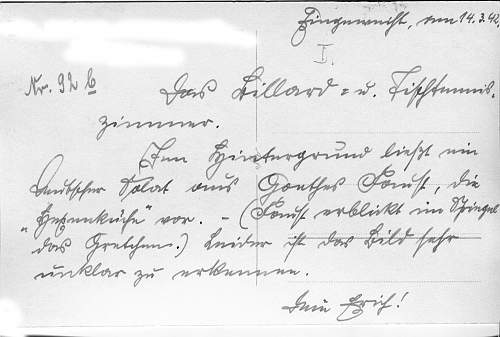 Eingereicht, am 14.3.42.
I.
Nr. 92 b Das Billard- u. Tischtennis-
zimmer.
Im Hintergrund ließt ein
deutscher Solat aus Goethes Faust, die
"Hexenküche" vor. - (Faust erblickt im Spiegel
das Gretchen.) Leider ist das Bild sehr
unklar zu erkennen.
Dein Erich!